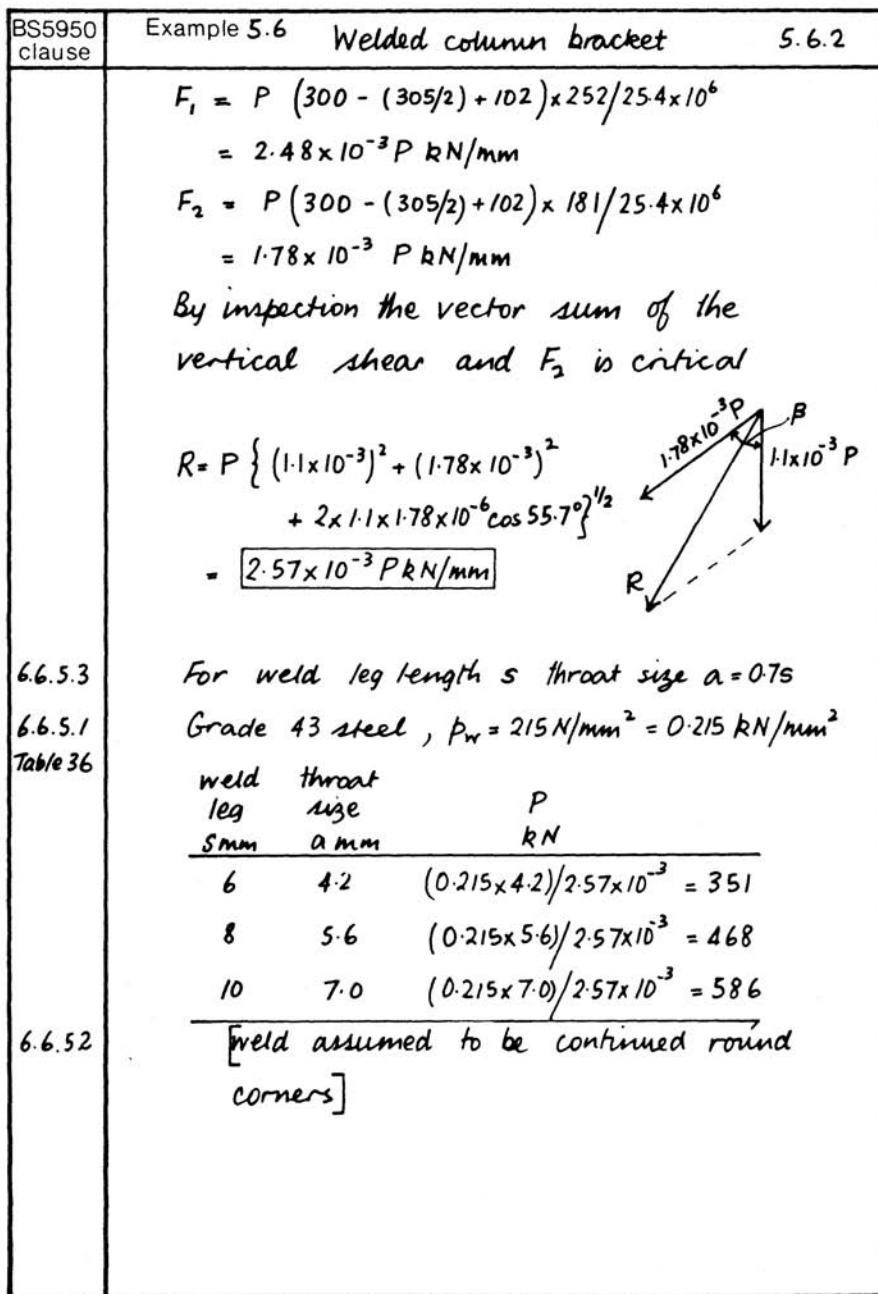 BS5950 clause
Example 5.6 Welded column bracket 5.6.2
F₁ = P (300 - (305/2) + 102) × 252/25.4×10⁶
= 2.48×10⁻³ P kN/mm
F₂ = P (300 - (305/2) + 102) × 181/25.4×10⁶
= 1.78×10⁻³ P kN/mm
By inspection the vector sum of the
vertical shear and F₂ is critical
1.78×10⁻³P
β
1.1×10⁻³ P
R
R = P { (1.1×10⁻³)² + (1.78×10⁻³)²
+ 2×1.1×1.78×10⁻⁶ cos 55.7° }^1/2
= 2.57×10⁻³ P kN/mm
6.6.5.3 For weld leg length s throat size a = 0.7s
6.6.5.1 Grade 43 steel, p_w = 215 N/mm² = 0.215 kN/mm²
Table 36
weld throat
leg size P
s mm a mm kN
6 4.2 (0.215×4.2)/2.57×10⁻³ = 351
8 5.6 (0.215×5.6)/2.57×10⁻³ = 468
10 7.0 (0.215×7.0)/2.57×10⁻³ = 586
6.6.52 [weld assumed to be continued round
corners]